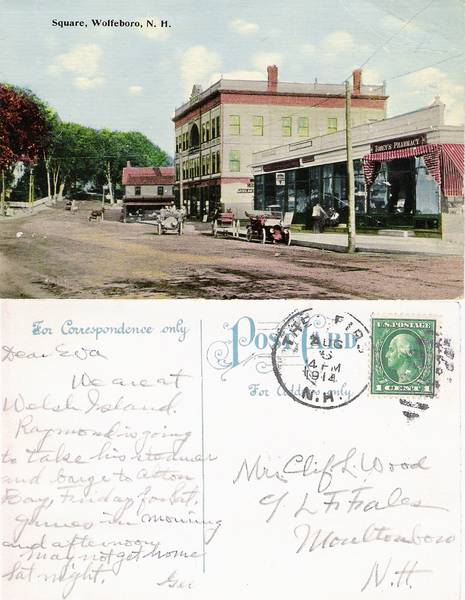 Square, Wolfeboro, N. H.
TOBEY'S PHARMACY
For Correspondence only
POST CARD
For Address only
AUG
4 PM
1914
N.H.
U.S. POSTAGE
Dear Eva
We are at
Welsh Island.
Raymond is going
to take his steamer
and barge to Alton
Bay, Friday
Games in morning
and afternoon
May not get home
Sat night.
Mr. Clif L. Wood
% L. F. Fales
Moultonboro
N.H.